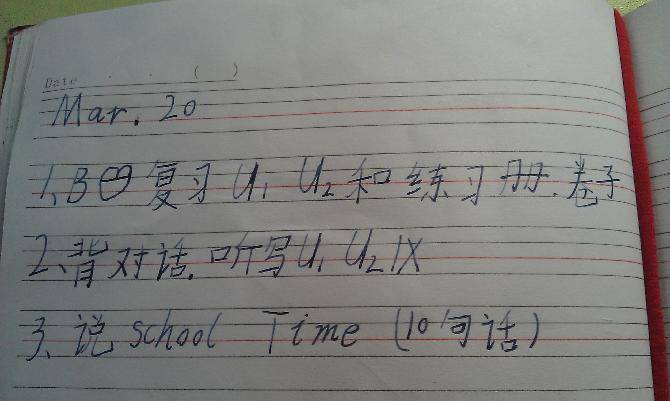 Date ( )
Mar. 20
1、B 复习 U1 U2 和练习册.卷子
2、背对话.听写U1 U2 1X
3、说 school Time (10句话)